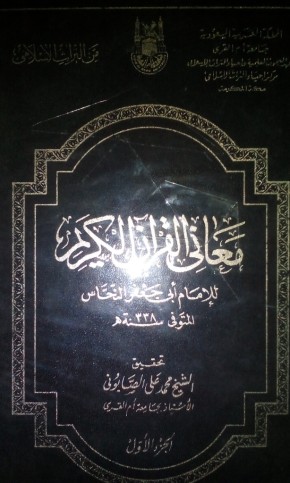 المملكة العربية السعودية
جامعة أم القرى
معهد البحوث العلمية وإحياء التراث الإسلامي
مركز إحياء التراث الإسلامي
مكة المكرمة
من التراث الإسلامي
معاني القرآن الكريم
للإمام أبي جعفر النحاس
المتوفى سنة ٣٣٨ هـ
تحقيق
الشيخ محمد علي الصابوني
الأستاذ بجامعة أم القرى
الجزء الأول